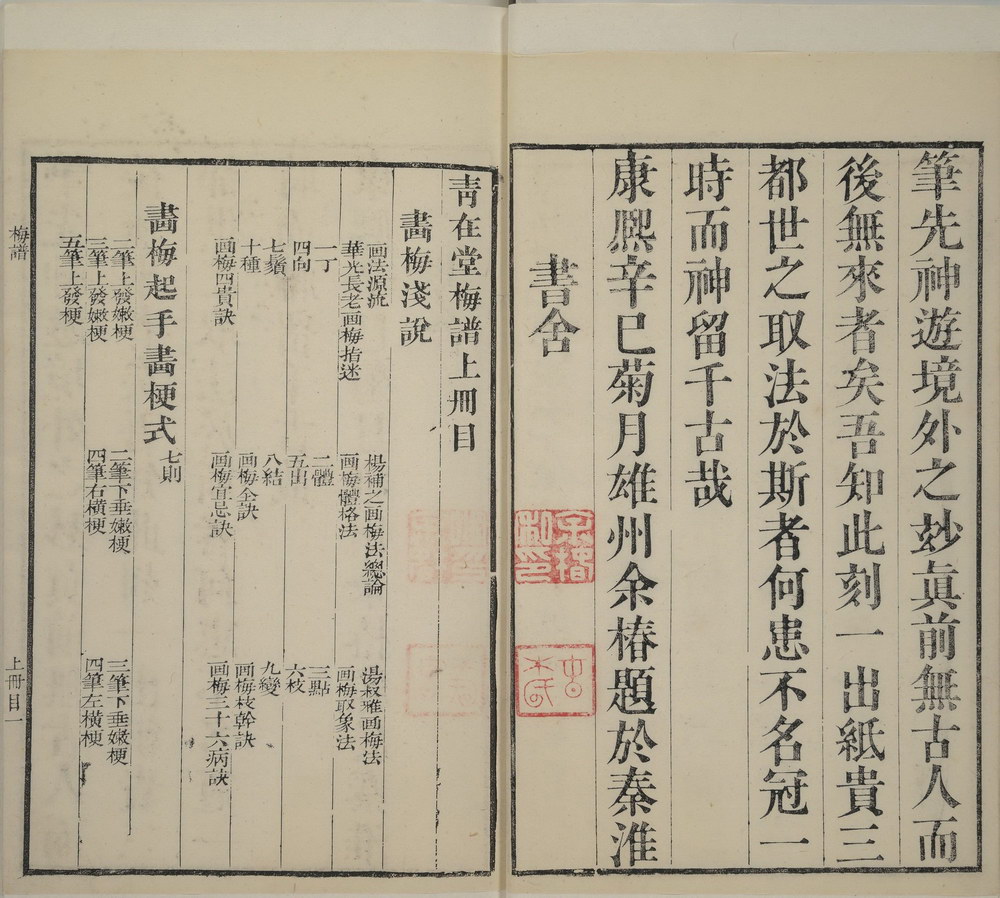 筆先神遊境外之玅眞前無古人而
後無來者矣吾知此刻一出紙貴三
都世之取法於斯者何患不名冠一
時而神留千古哉
康熙辛巳菊月雄州余椿題於秦淮
書舍
余椿
靑在堂梅譜上冊目
畫梅淺說
画法源流 楊補之画梅法總論 湯叔雅画梅法
華光長老画梅指迷 画梅體格法 画梅取象法
一丁 二體 三點
四向 五出 六枝
七鬚 八結 九變
十種 画梅全訣 画梅枝幹訣
画梅四貴訣 画梅宜忌訣 画梅三十六病訣
畫梅起手畫梗式 七則
二筆上發嫩梗 二筆下垂嫩梗 三筆下垂嫩梗
三筆上發嫩梗 四筆右横梗 四筆左横梗
五筆上發梗
梅譜 上冊目一